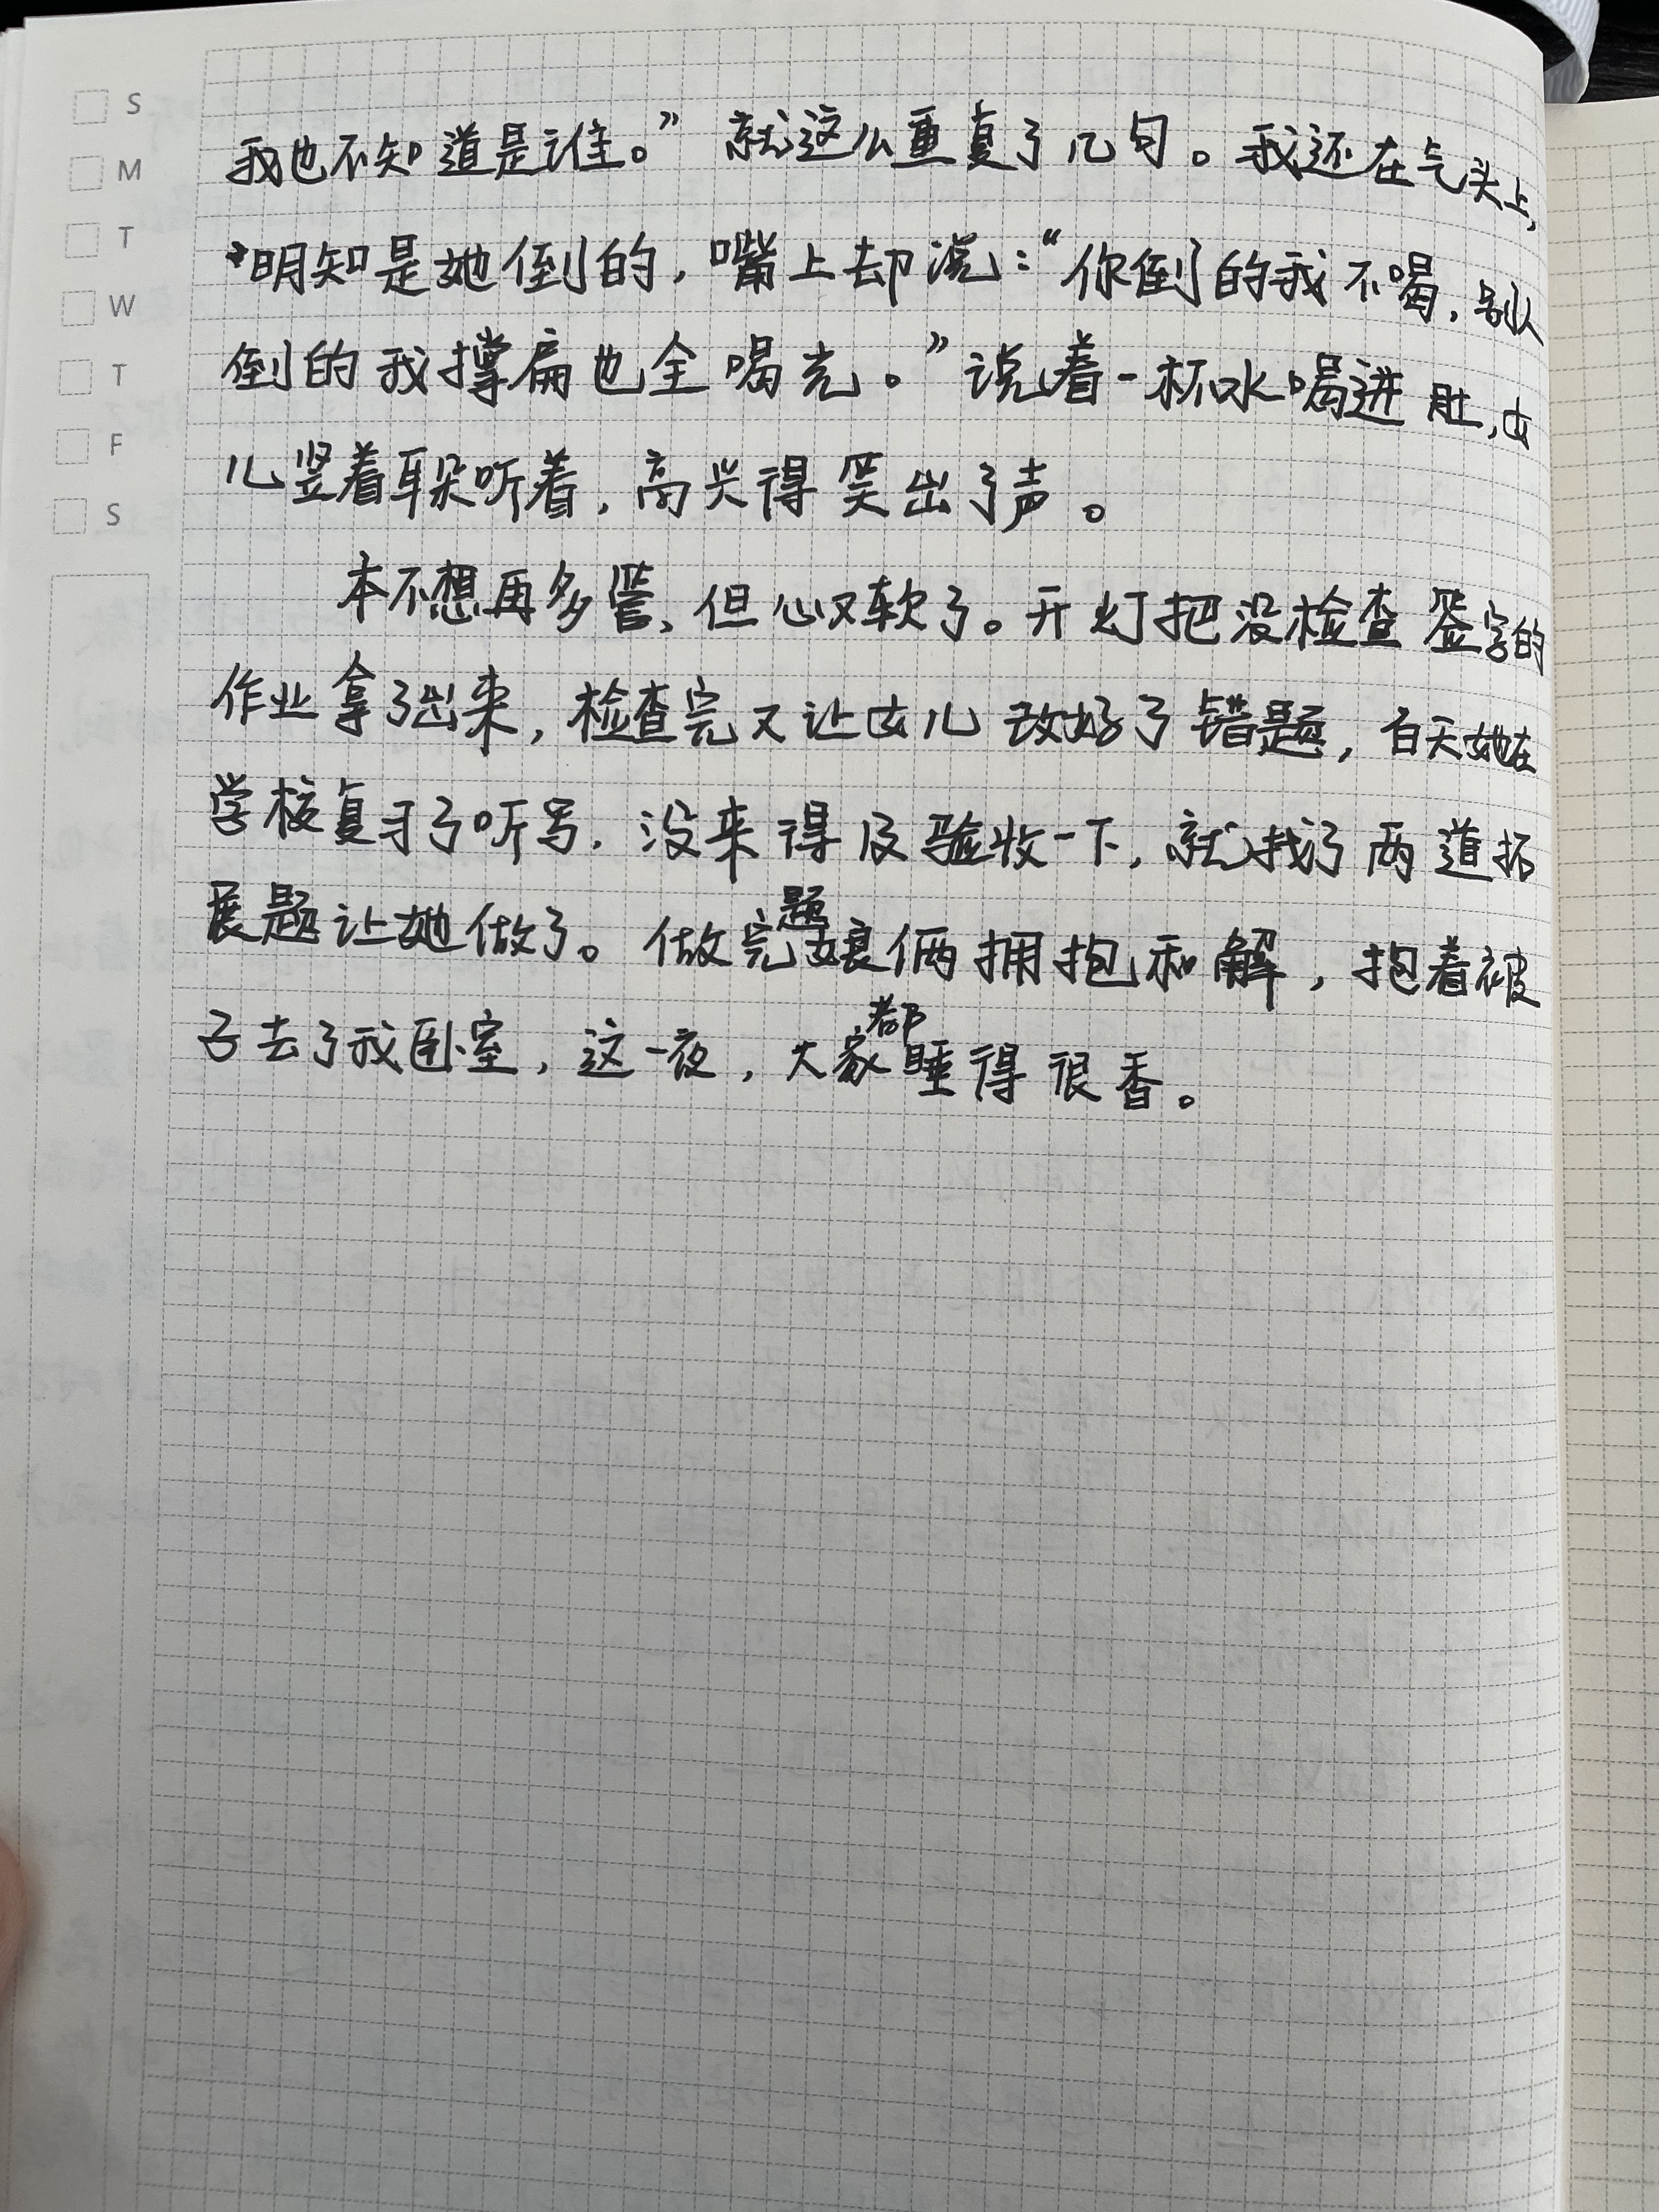 S
M
T
W
T
F
S
我也不知道是谁。”就这么重复了几句。我还在气头上,
明知是她倒的,嘴上却说:“你倒的我不喝,别人
倒的我撑扁也全喝光。”说着一杯水喝进肚,女
儿竖着耳朵听着,高兴得笑出了声。
本不想再多管,但心又软了。开灯把没检查签字的
作业拿了出来,检查完又让女儿改好了错题,白天她在
学校复习了听写,没来得及验收一下,就找了两道拓
展题让她做了。做完题娘俩拥抱和解,抱着被
子去了我卧室,这一夜,大家都睡得很香。